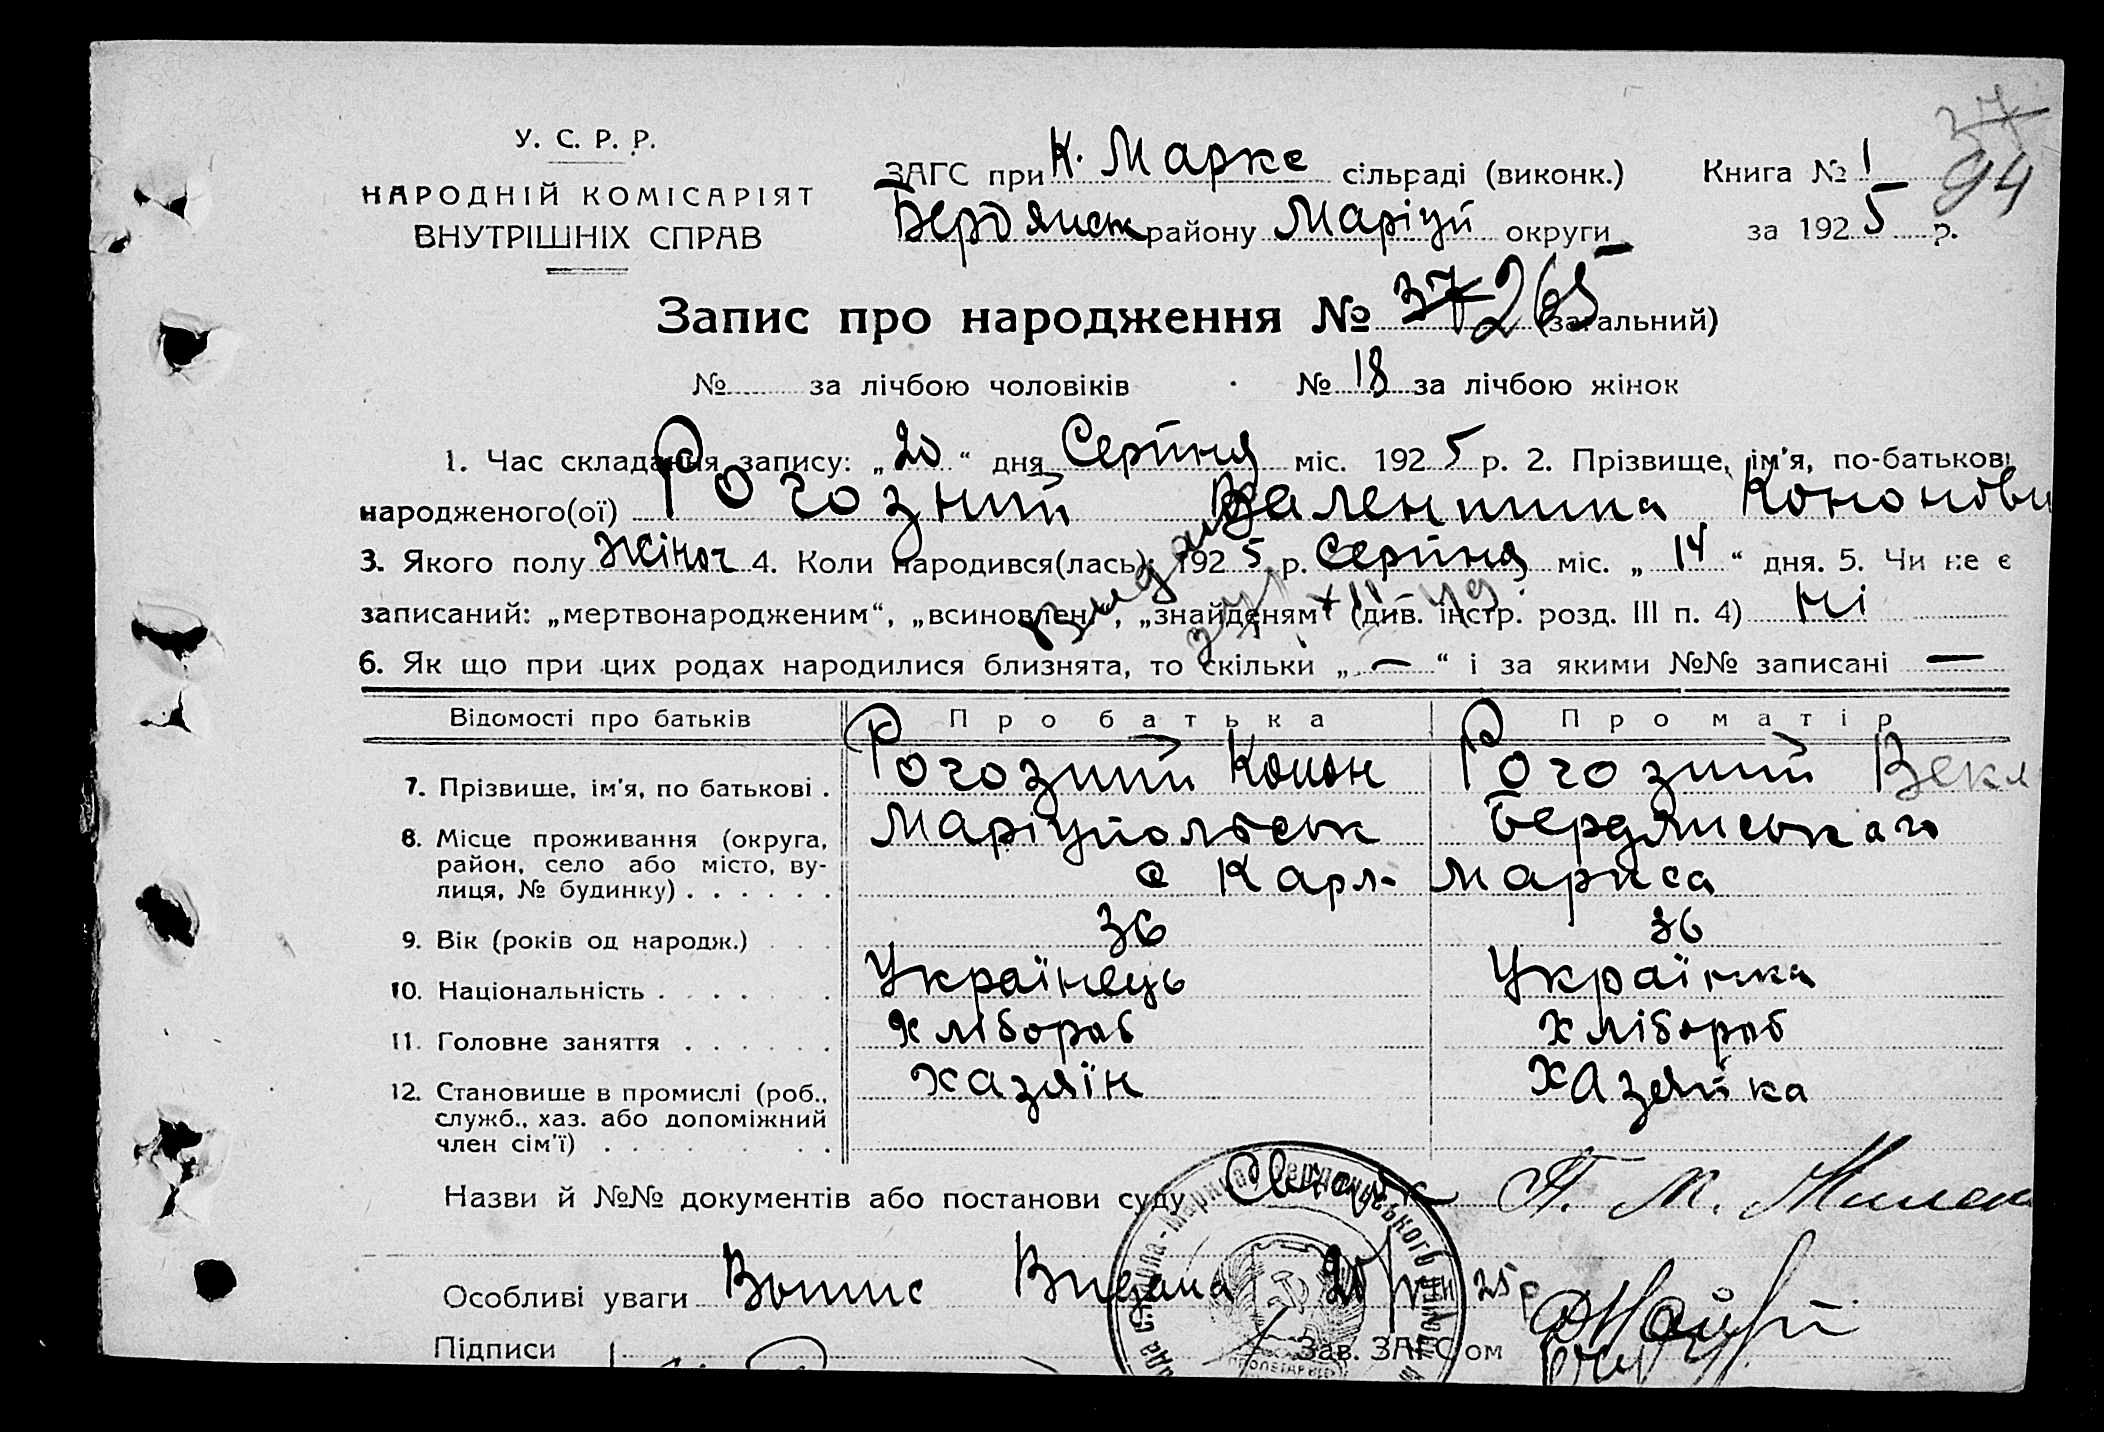 37
94
У. С. Р. Р.
НАРОДНІЙ КОМІСАРІЯТ
ВНУТРІШНІХ СПРАВ
ЗАГС при К. Маркс сільраді (виконк.)
Бердянськ району Маріуп округи
Книга № 1
за 1925 р.
Запис про народження № 37 265 (загальний)
№ за лічбою чоловіків № 18 за лічбою жінок
1. Час складання запису: „20“ дня Серпня міс. 1925 р. 2. Прізвище, ім’я, по-батькові
народженого(ої) Рогозний Валентина Кононовн
3. Якого полу жіноч 4. Коли народився(лась): 1925 р. Серпня міс. „14“ дня. 5. Чи не є
записаний: „мертвонародженим“, „всиновлен“, „знайденям“ (див. інстр. розд. III п. 4) ні
6. Як що при цих родах народилися близнята, то скільки „—“ і за якими №№ записані —
Відомості про батьків Про батька Про матір
7. Прізвище, ім’я, по батькові . Рогозний Конон Рогозний Векл
8. Місце проживання (округа, Маріупольськ Бердянського
район, село або місто, ву- с Карл- Маркса
лиця, № будинку) . . . . . .
9. Вік (років од народж.) . . . 36 36
10. Національність . . . . . . Українець Українка
11. Головне заняття . . . . . . хлібороб хлібороб
12. Становище в промислі (роб., хазяїн хазяйка
служб., хаз. або допоміжний
член сім’ї) . . . . . . .
Назви й №№ документів або постанови суду П. М.
Особливі уваги Випис Видана 20/VIII 25 р
Підписи Зав. ЗАГСом